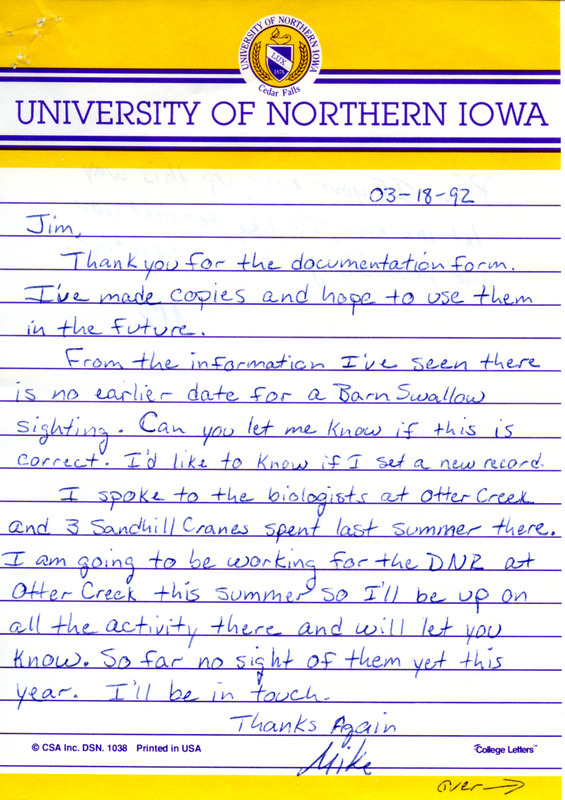 UNIVERSITY OF NORTHERN IOWA
LUX
1876
Cedar Falls
UNIVERSITY OF NORTHERN IOWA
03-18-92
Jim,
Thank you for the documentation form.
I've made copies and hope to use them
in the future.
From the information I've seen there
is no earlier date for a Barn Swallow
sighting. Can you let me know if this is
correct. I'd like to know if I set a new record.
I spoke to the biologists at Otter Creek
and 3 Sandhill Cranes spent last summer there.
I am going to be working for the DNR at
Otter Creek this summer so I'll be up on
all the activity there and will let you
know. So far no sight of them yet this
year. I'll be in touch.
Thanks Again
Mike
© CSA Inc. DSN. 1038 Printed in USA
College Letters™
over →